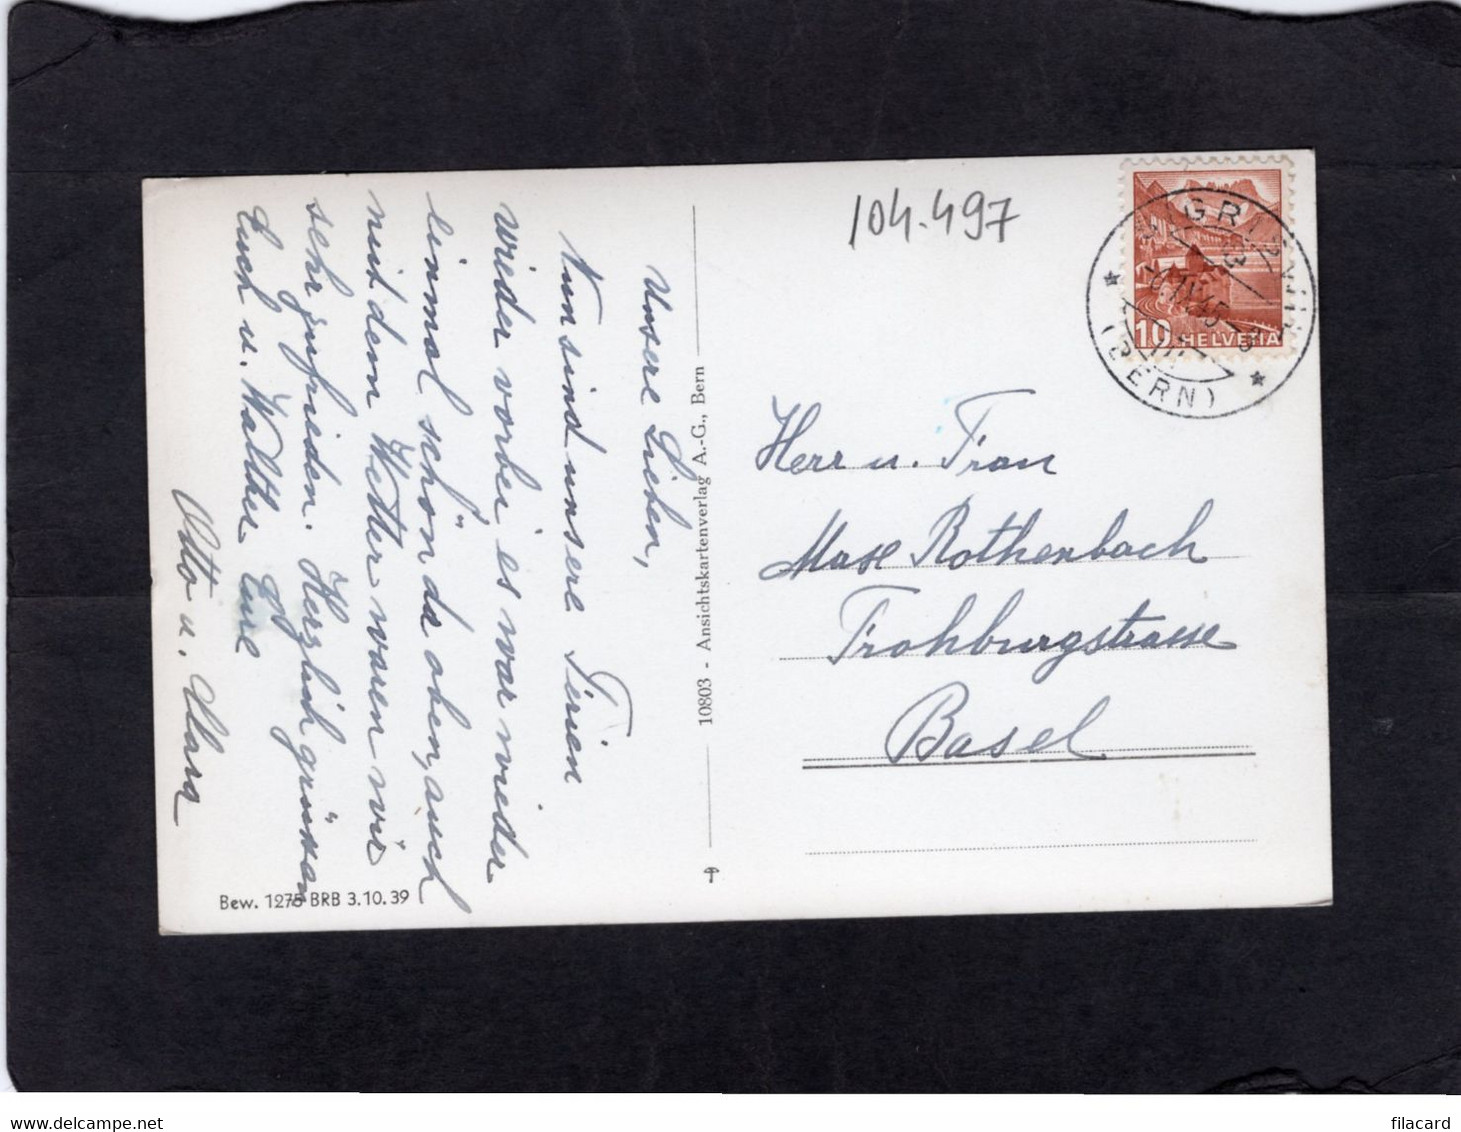 Unsere Lieben,
Nun sind unsere Ferien
wieder vorbei es war wieder
einmal schön da oben, auch
mit dem Wetter waren wir
sehr zufrieden. Herzlich grüssen
Euch u. Walther Eure
Otto u. Clara
Bew. 1275 BRB 3.10.39
10803 - Ansichtskartenverlag A.-G., Bern
104.497
10 HELVETIA
(BERN)
Herr u. Frau
Max Rothenbach
Frohburgstrasse
Basel
www.delcampe.net
filacard